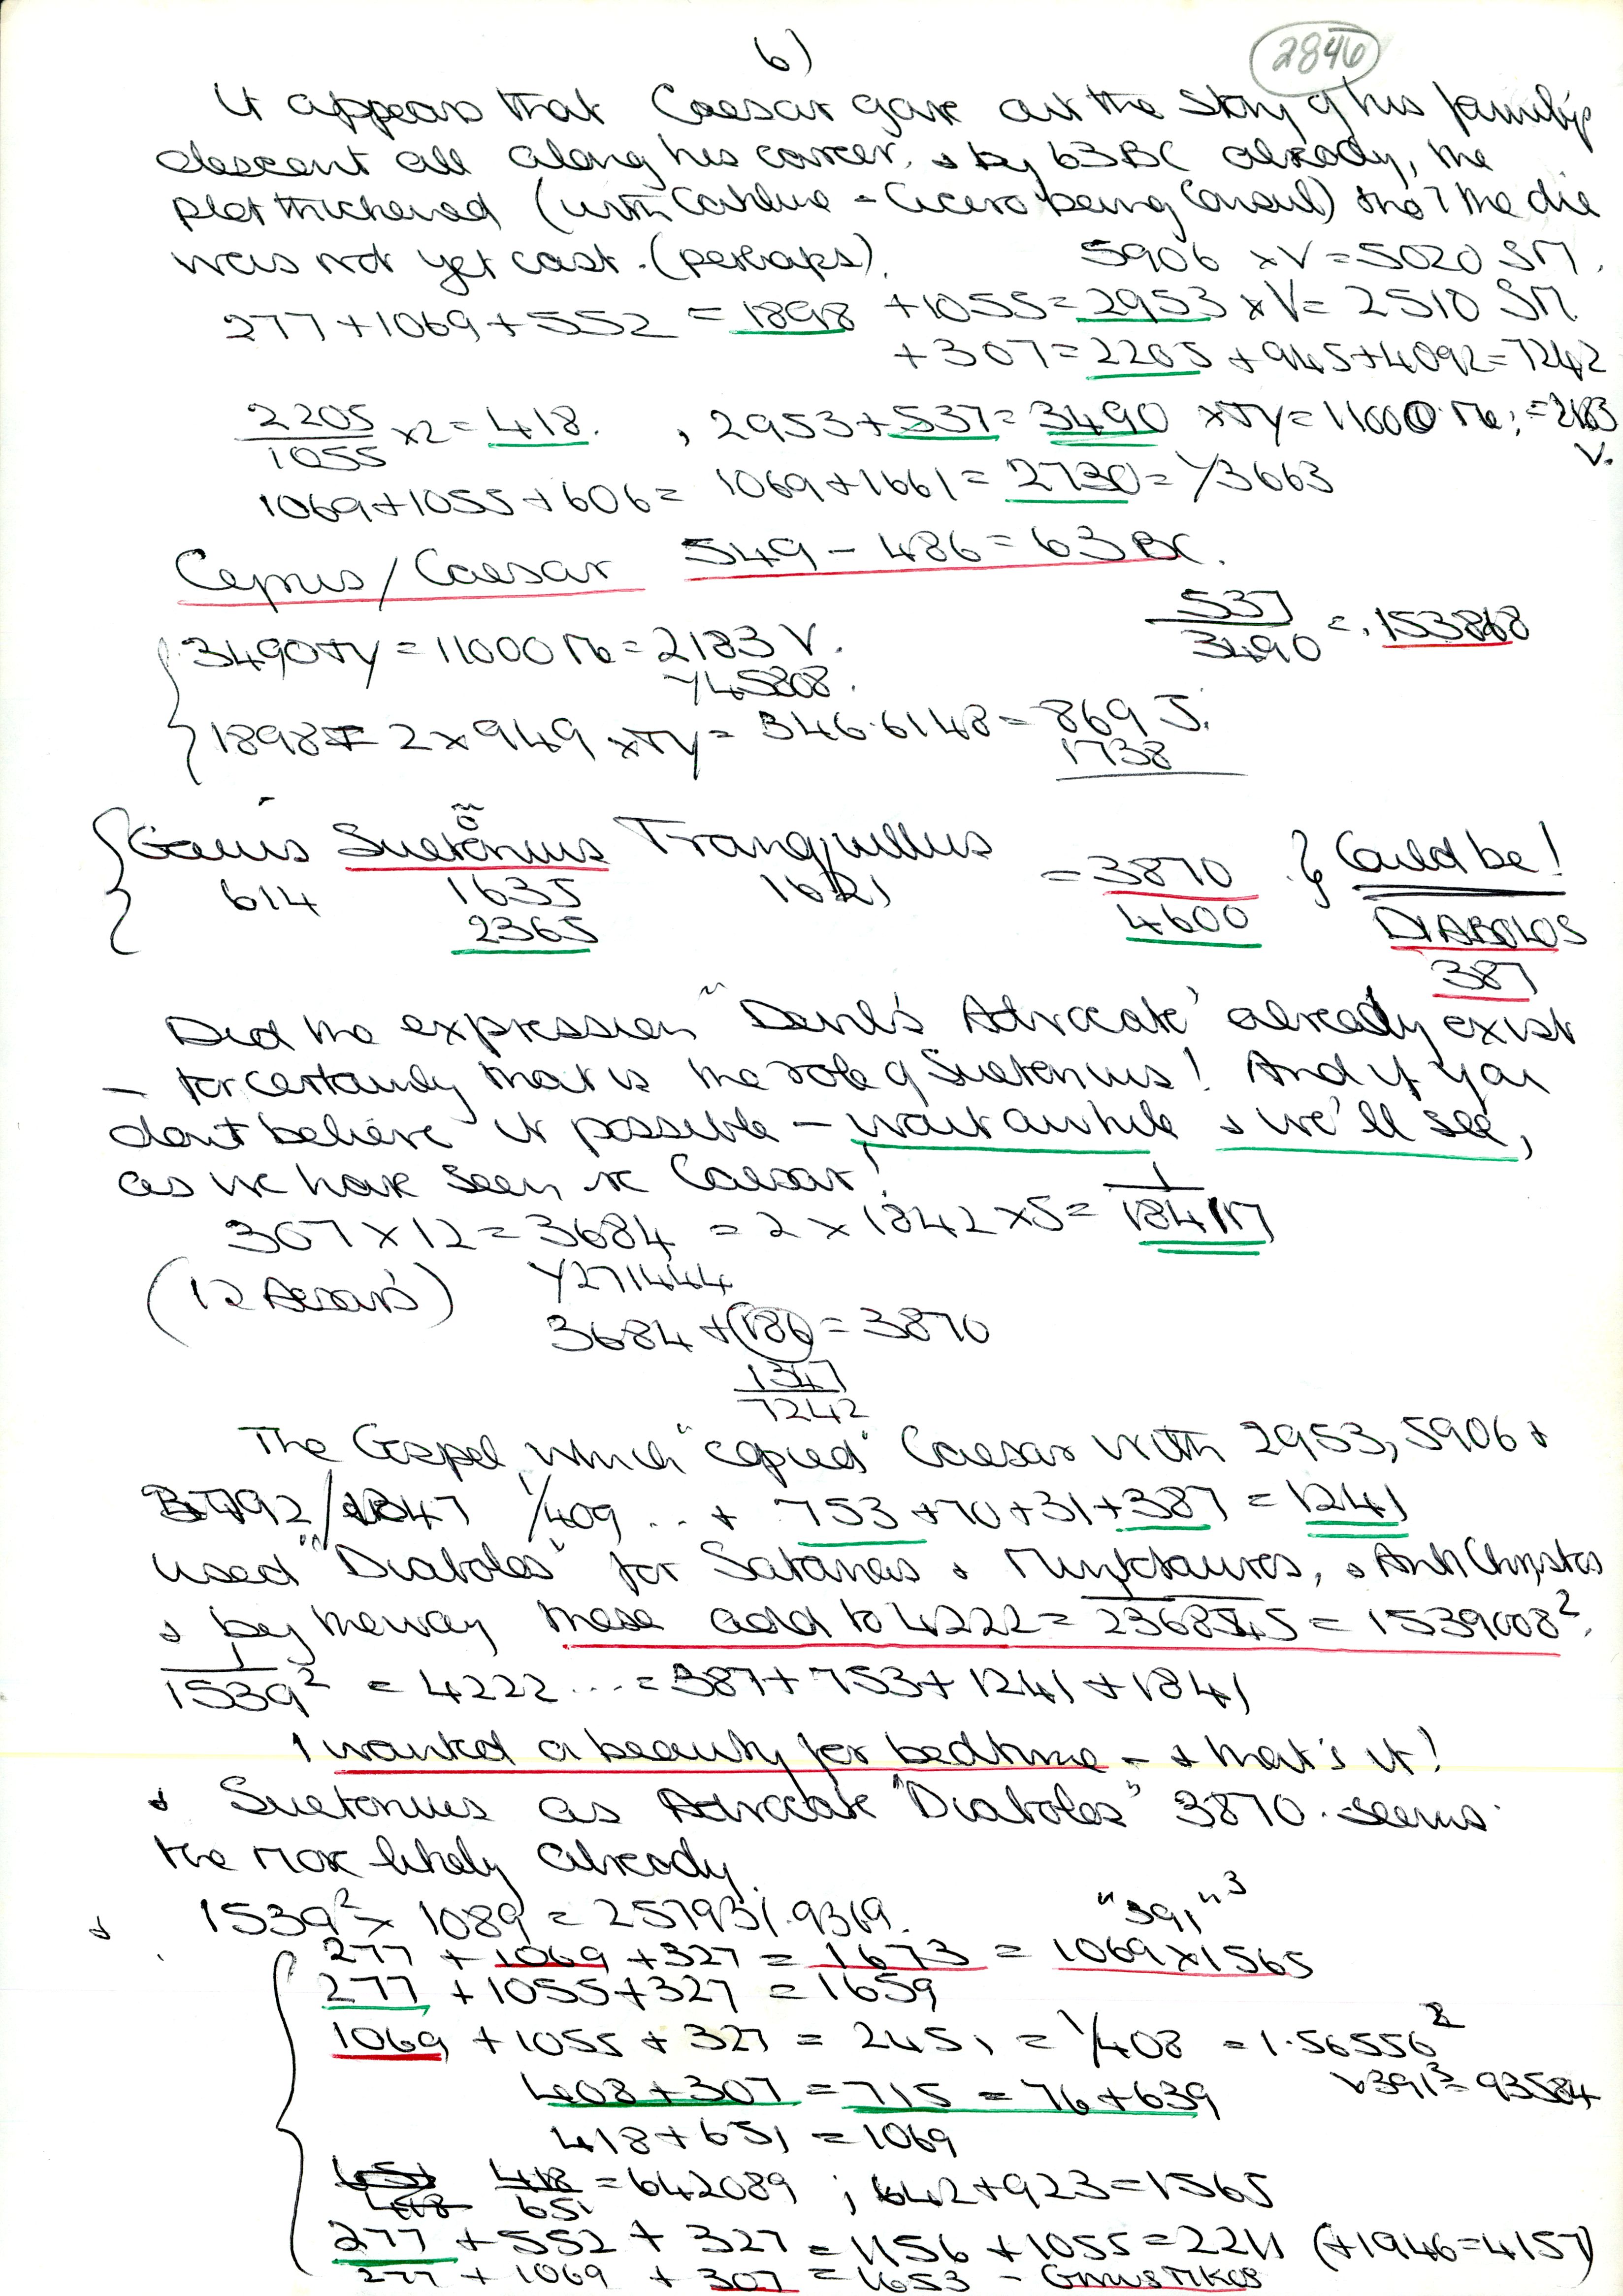 6)
2846
It appears that Caesar gave out the story of his family's
descent all along his career, & by 63BC already, the
plot thickened (with Catiline - Cicero being Consul) tho' the die
was not yet cast. (perhaps).
5906 x V = 5020 SM.
277+1069+552 = 1898 +1055=2953 x V= 2510 SM
+307=2205 +945+4092=7242
2205/1055 x2= 418. , 2953+537=3490 xπy=11000 Me; =2183 V.
1069+1055+606= 1069+1661= 2730= Y3663
Cyrus/Caesar 549-486=63BC.
537/3490 =.153868
3490πy=11000 Me=2183 V.
Y45808.
1898= 2x949 xπy= 346.6148= 869 J.
1738
Gaius Suetonius Tranquillus = 3870 } Could be!
614 1635 1621
2365 4600 DIABOLOS
387
Did the expression "Devil's Advocate" already exist
- for certainly that is the role of Suetonius! And if you
dont believe it possible - wait awhile & we'll see,
as we have seen re Caesar!
307x12=3684 = 2x1842x5= 1/18417
(12 Aesars) Y271444
3684+(186)=3870
1347
7242
The Gospel which "copied" Caesar with 2953, 5906 &
1/409 .. + 753+70+31+387 = 1241
used "Diabolos" for Satanas & Minotauros, & AntiChristos
& by the way these add to 4222= = 1539008².
1/1539² = 4222 ... =387+753+1241+1841
I wanted a beauty for bedtime - & that's it!
& Suetonius as Advocate "Diabolos" 3870. seems
the more likely already.
& 1539² x 1089 = 257931.9369. "391"³
277 + 1069 +327 = 1673 = 1069x1565
277 +1055+327 =1659
1069 +1055 + 327 = 2451 = 1/408 =1.56556²
408+307 =715 =76+639 √391³=93584
418+651 =1069
418/651 =642089 ; 642+923=1565
277 +552 + 327 =1156 +1055=2211 (+1946=4157)
277 + 1069 + 307 =1653 - GNOSTIKOS